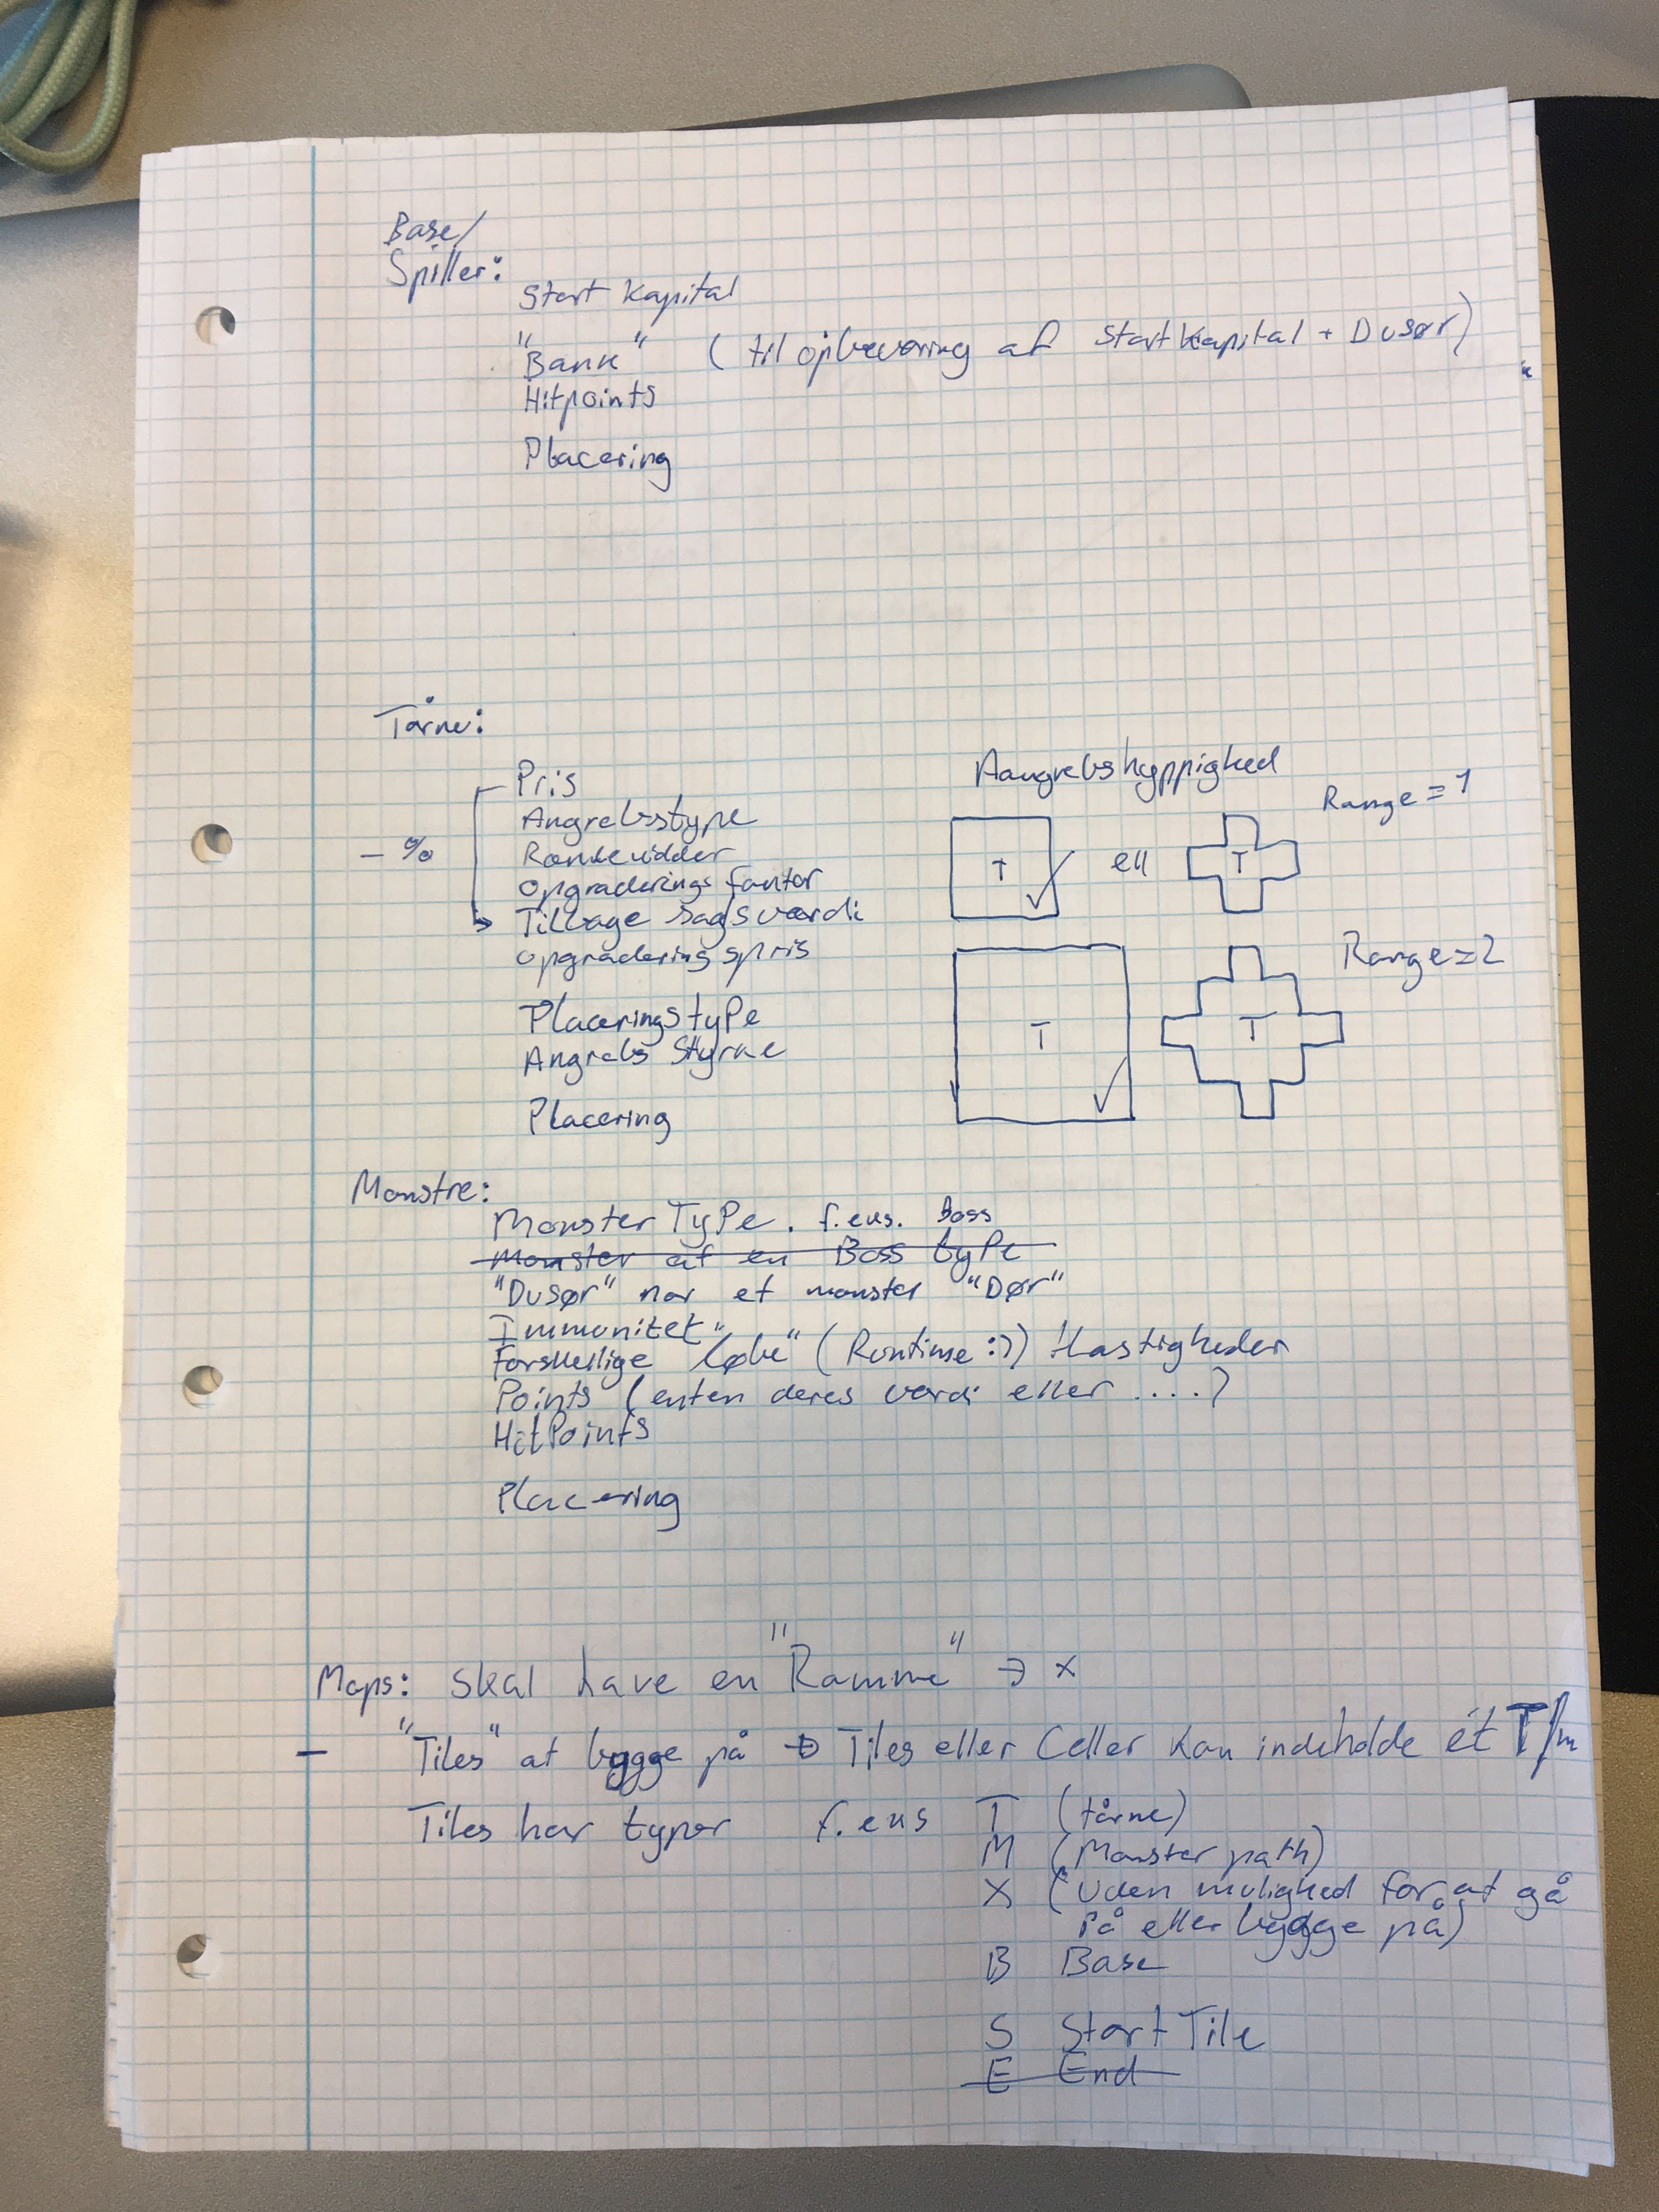 Base/
Spiller:
Start Kapital
"Bank" (til opbevaring af Startkapital + Dusør)
Hitpoints
Placering
Tårne:
Pris
Aangrebshyppighed
Range = 1
Angrebstype
- %
Rækkevidder
T ell T
Opgraderings faktor
Tilbage sagsværdi
Opgraderingspris
Range = 2
Placeringstype
T T
Angrebs Styrke
Placering
Monstre:
MonsterType. f.eks. Boss
Monster af en Boss type
"Dusør" når et monster "Dør"
Immunitet
Forskellige "løbe" (Runtime :)) Hastigheder
Points (enten deres værdi eller ....)
HitPoints
Placering
Maps: skal have en "Ramme" → X
- "Tiles" at bygge på → Tiles eller Celler kan indeholde ét T/m
Tiles har typer f.eks T (tårne)
M (Monster path)
X (Uden mulighed for at gå
på eller bygge på)
B Base
S Start Tile
E End